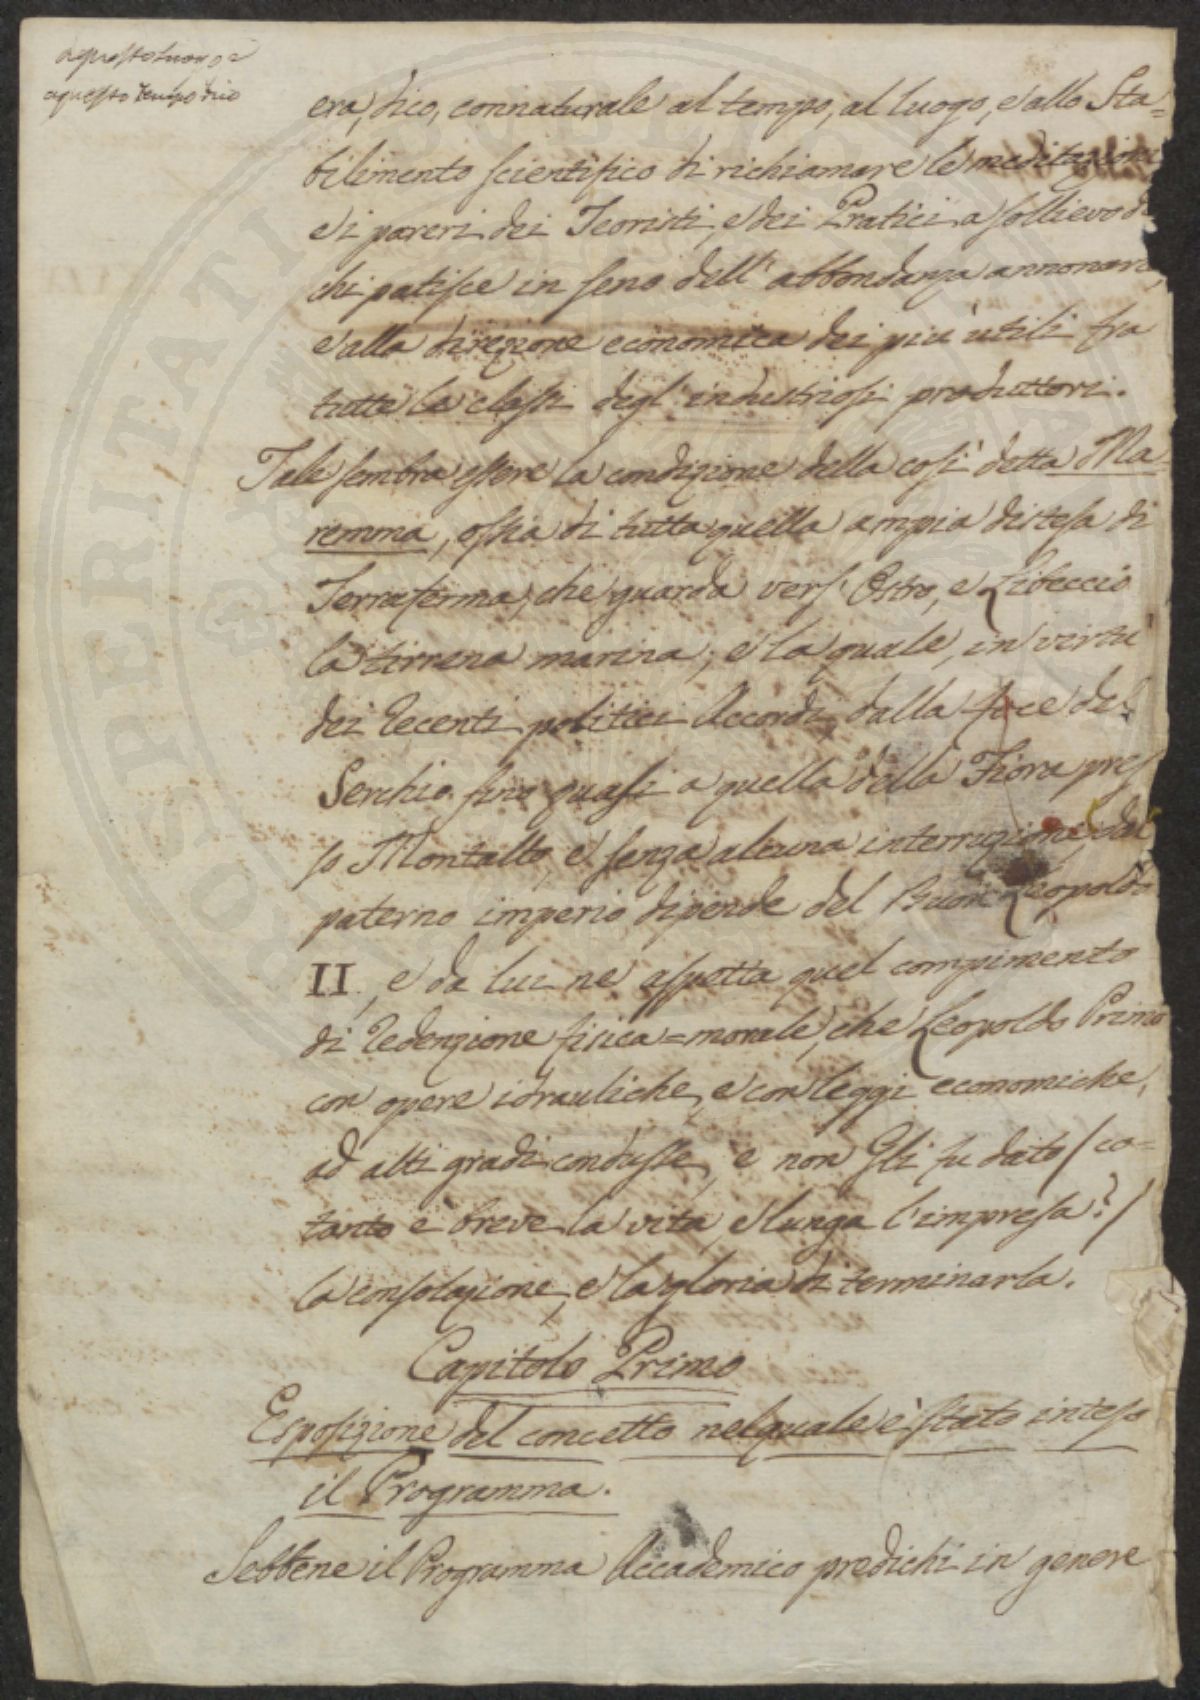 a questo luogo e
a questo tempo dico
era, dico, connaturale al tempo, al luogo, e allo Sta=
bilimento scientifico di richiamare le meditazioni
e i pareri dei Teoristi, e dei Pratici a sollievo di
chi patisce in seno dell' abbondanza annonaria,
e alla direzione economica dei più utili fra
tutte le classi degl' industriosi produttori.
Tale sembra essere la condizione della così detta Ma
remma, ossia di tutta quella ampia distesa di
Terraferma, che guarda vers' Ostro, e Libeccio
la tirrena marina, e la quale, in virtù
dei recenti politici Accordi, dalla foce del
Serchio fino quasi a quella della Fiora pres
so Montalto, e senza alcuna interruzione, dal
paterno imperio dipende del Buon Leopoldo
II., e da lui ne aspetta quel compimento
di redenzione fisica=morale, che Leopoldo Primo
con opere idrauliche, e con leggi economiche,
ad alti gradi condusse, e non Gli fu dato / co=
tanto è breve la vita, e lunga l'impresa! /
la consolazione, e la gloria di terminarla.
Capitolo Primo
Esposizione del concetto nel quale è stato inteso
il Programma.
Sebbene il Programma Accademico predichi in genere
PROSPERITATI PUBLICAE